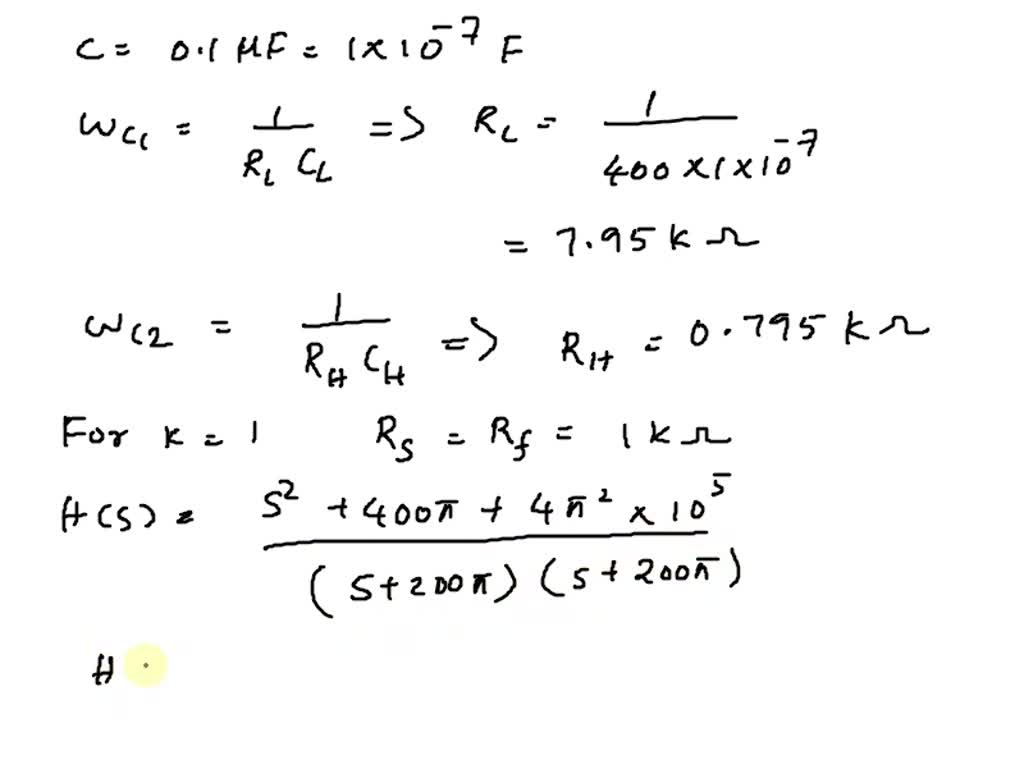 C = 0.1 μF = 1×10⁻⁷ F
ωC1 = 1/(RL CL) => RL = 1/(400×1×10⁻⁷)
= 7.95 k Ω
ωC2 = 1/(RH CH) => RH = 0.795 k Ω
For k = 1 Rs = Rf = 1 k Ω
H(S) = (S² + 400π + 4π² × 10⁵)/((S+200π)(S+200π))
H